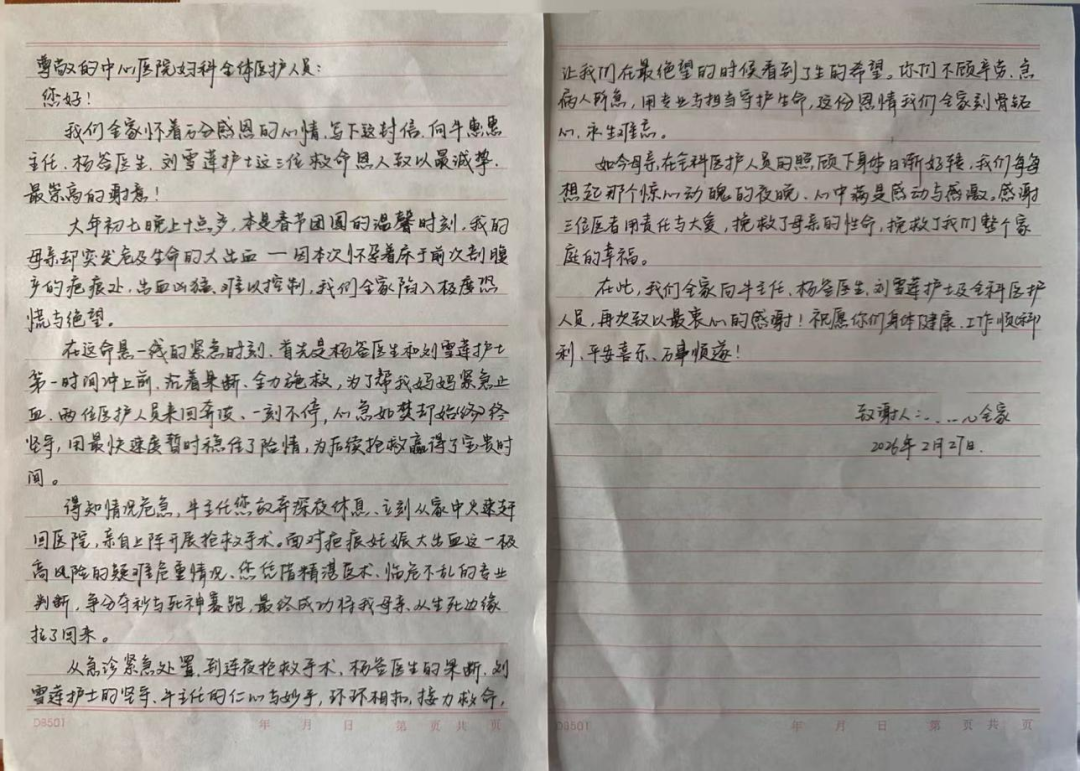 尊敬的中心医院妇科全体医护人员：
您好！
我们全家怀着万分感恩的心情，写下这封信，向牛惠惠
主任、杨笿医生、刘雪莲护士这三位救命恩人致以最诚挚、
最崇高的谢意！
大年初七晚上十点多，本是春节团圆的温馨时刻，我的
母亲却突发危及生命的大出血——因本次怀孕着床于前次剖腹
产的疤痕处，出血凶猛、难以控制，我们全家陷入极度恐
慌与绝望。
在这命悬一线的紧急时刻，首先是杨笿医生和刘雪莲护士
第一时间冲上前，沉着果断、全力施救，为了帮我妈妈紧急止
血，两位医护人员来回奔波、一刻不停，心急如焚却始终
坚守，用最快速度暂时稳住了险情，为后续抢救赢得了宝贵时
间。
得知情况危急，牛主任您放弃深夜休息、立刻从家中火速赶
回医院，亲自上阵开展抢救手术。面对疤痕妊娠大出血这一极
高风险的疑难危重情况，您凭借精湛医术、临危不乱的专业
判断，争分夺秒与死神赛跑，最终成功将我母亲从生死边缘
拉了回来。
从急诊紧急处置，到连夜抢救手术，杨笿医生的果断、刘
雪莲护士的坚守、牛主任的仁心与妙手，环环相扣，接力救命，
D8501 年 月 日 第 页 共 页
让我们在最绝望的时候看到了生的希望。你们不顾辛劳、急
病人所急，用专业与担当守护生命，这份恩情我们全家刻骨铭
心、永生难忘。
如今母亲在全科医护人员的照顾下身体日渐好转，我们每每
想起那个惊心动魄的夜晚，心中满是感动与感激。感谢
三位医者用责任与大爱，挽救了母亲的性命，挽救了我们整个家
庭的幸福。
在此，我们全家向牛主任、杨笿医生、刘雪莲护士及全科医护
人员，再次致以最衷心的感谢！祝愿你们身体健康、工作顺
利、平安喜乐、万事顺遂！
致谢人：全家
2026年2月27日.
D8501 年 月 日 第 页 共 页